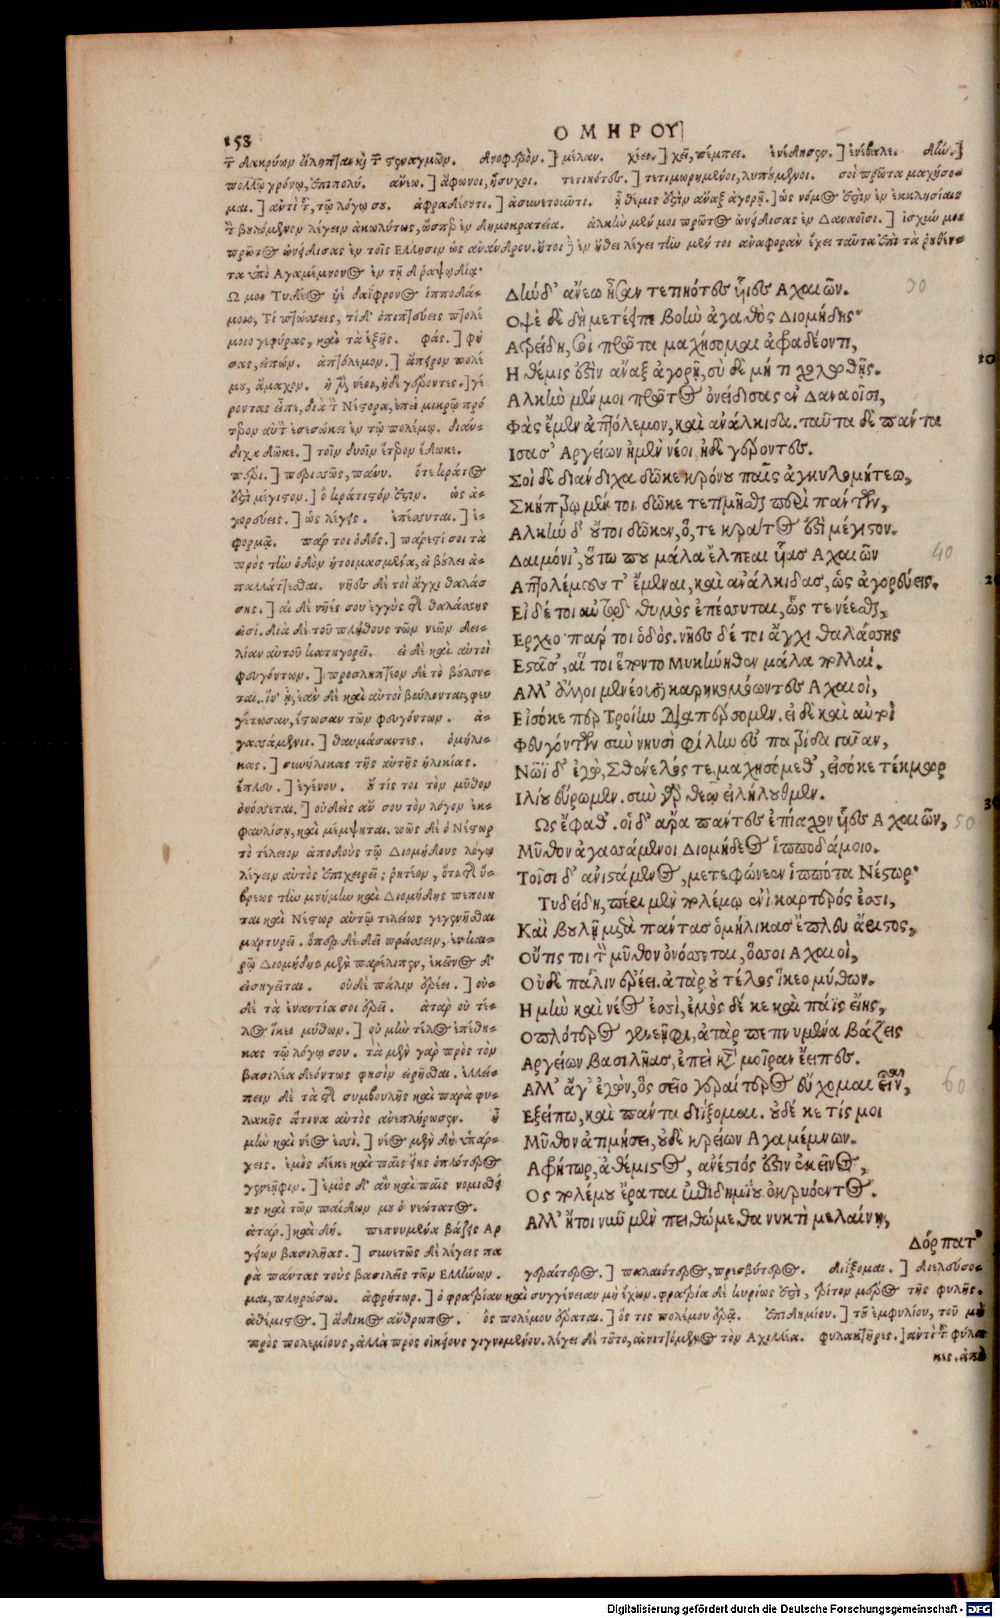 158
ΟΜΗΡΟΥ
τῶν δακρύων εἴληπται καὶ τῶν στεναγμῶν. δνοφερόν.] μέλαν. χέει.] χεῖ, πέμπει. ἐνέδησεν.] ἐνέβαλε. δήν.]
πολλῷ χρόνῳ, ἐπιπολύ. ἄνεω.] ἄφωνοι, ἥσυχοι. τετιηότες.] τετιμωρημένοι, λυπούμενοι. σοὶ πρῶτα μαχήσο-
μαι.] ἀντὶ τοῦ, τῷ λόγῳ σου. ἀφραδέοντι.] ἀσυνετοῦντι. ἣ θέμις ἐστὶν ἄναξ ἀγορῇ.] ὡς νόμος ἐστὶν ἐν ἐκκλησίαις
τὸν βουλόμενον λέγειν ἀκωλύτως, ὥσπερ ἐν δημοκρατείᾳ. ἀλκὴν μέν μοι πρῶτος ὠνείδισας ἐν Δαναοῖσι.] ἰσχύν μοι
πρῶτος ὠνείδισας ἐν τοῖς Ελλησιν ὡς ἀνάνδρου. ἤτοι δὲ ἐν ἤθει λέγει τὴν μέν τοι ἀναφορὰν ἔχει ταῦτα ἐπὶ τὰ ῥηθέν-
τα ὑπὸ Αγαμέμνονος ἐν τῇ δ ῥαψῳδίᾳ·
Ω μοι Τυδέος υἱὲ δαΐφρονος ἱπποδά-
μοιο, Τί πτώσσεις, τί δ' ὀπιπτεύεις πτολέ
μοιο γεφύρας, καὶ τὰ ἑξῆς. φάς.] φή
σας, εἰπών. ἀπτόλεμον.] ἄπειρον πολέ
μου, ἄμαχον. ἠμὲν νέοι, ἠδὲ γέροντες.] γέ
ροντας εἶπε, διὰ τὸν Νέστορα, ἐπεὶ μικρῷ πρό
τερον αὐτὸν ἐσεσώκει ἐν τῷ πολέμῳ. διάν-
διχα δῶκε.] τοῖν δυοῖν ἕτερον ἔδωκε.
πέρι.] περισσῶς, πάνυ. ὅτε κράτος
ἐστὶ μέγιστον.] ὃ κράτιστόν ἐστιν. ὡς ἀ-
γορεύεις.] ὡς λέγεις. ἐπέσσυται.] ἐ-
φορμᾷ. πάρ τοι ὁδός.] πάρεστί σοι τὰ
πρὸς τὴν ὁδὸν ἡτοιμασμένα, εἰ βούλει ἀ-
παλλάττεσθαι. νῆες δέ τοι ἄγχι θαλάσ
σης.] αἱ δὲ νῆές σου ἐγγὺς τῆς θαλάσσης
εἰσί. διὰ δὲ τοῦ πλήθους τῶν νεῶν δει-
λίαν αὐτοῦ κατηγορεῖ. εἰ δὲ καὶ αὐτοὶ
φευγόντων.] προσληπτέον δὲ τὸ βούλον-
ται. ἵν' ᾖ, ἐὰν δὲ καὶ αὐτοὶ βούλονται, φευ
γέτωσαν, ἔστωσαν τῶν φευγόντων. ἀ-
γασσάμενοι.] θαυμάσαντες. ὁμήλι-
κας.] συνήλικας τῆς αὐτῆς ἡλικίας.
ἔπλευ.] ἐγένου. οὔ τίς τοι τὸν μῦθον
ὀνόσσεται.] οὐδεὶς ἄν σου τὸν λόγον ἐκ-
φαυλίσῃ, καὶ μέμψηται. πῶς δὲ ὁ Νέστωρ
τὸ τέλειον ἀποδοὺς τῷ Διομήδους λόγῳ
λέγειν αὐτὸς ἐπιχειρεῖ; ῥητέον, ὅτι τῆς ὕ-
βρεως τὴν μνήμην καὶ Διομήδης πεποίη
ται καὶ Νέστωρ αὐτῷ τελείως γεγενῆσθαι
μαρτυρεῖ. ὅπερ δὲ δεῖ πράσσειν, ἐν και-
ρῷ Διομήδης μὲν παρέλιπεν, ἐκεῖνος δ'
εἰσηγεῖται. οὐδὲ πάλιν ἐρέει.] οὐ-
δὲ τὰ ἐναντία σοι ἐρεῖ. ἀτὰρ οὐ τέ-
λος ἵκεο μύθων.] οὐ μὴν τέλος ἐπέθη-
κας τῷ λόγῳ σου. τὰ μὲν γὰρ πρὸς τὸν
βασιλέα δεόντως φησὶν εἰρῆσθαι. ἐλλεί-
πειν δὲ τὰ τῆς συμβουλῆς καὶ παρὰ φυ-
λακῆς ἅτινα αὐτὸς ἀνεπλήρωσεν. ἦ
μὴν καὶ νέος ἐσσί.] νέος μὲν δὴ ὑπάρ-
χεις. ἐμὸς δέ κε καὶ πάϊς εἴης ὁπλότερος
γενεῆφιν.] ἐμὸς δ' ἂν καὶ παῖς νομισθεί
ης καὶ τῶν παίδων μου ὁ νεώτατος.
ἀτάρ.] καὶ δή. πεπνυμένα βάζεις Αρ
γείων βασιλῆας.] συνετῶς δὲ λέγεις πα
ρὰ πάντας τοὺς βασιλεῖς τῶν Ελλήνων.
Δὴν δ' ἄνεω ἦσαν τετιηότες υἷες Αχαιῶν.
Οψὲ δὲ δὴ μετέειπε βοὴν ἀγαθὸς Διομήδης·
Ατρείδη, σοὶ πρῶτα μαχήσομαι ἀφραδέοντι,
Η θέμις ἐστὶν ἄναξ ἀγορῇ, σὺ δὲ μή τι χολωθῇς.
Αλκὴν μέν μοι πρῶτος ὀνείδισας ἐν Δαναοῖσι,
Φὰς ἔμεν ἀπτόλεμον, καὶ ἀνάλκιδα. ταῦτα δὲ πάντα
Ισασ' Αργείων ἠμὲν νέοι ἠδὲ γέροντες.
Σοὶ δὲ διάνδιχα δῶκε κρόνου παῖς ἀγκυλομήτεω,
Σκήπτρῳ μέν τοι δῶκε τετιμῆσθαι περὶ πάντων,
Αλκὴν δ' οὔτοι δῶκεν, ὅ, τε κράτος ἐστὶ μέγιστον.
Δαιμόνι', οὕτω που μάλα ἔλπεαι υἷας Αχαιῶν
Απτολέμους τ' ἔμεναι, καὶ ἀνάλκιδας, ὡς ἀγορεύεις.
Εἰ δέ τοι αὐτῷ θυμὸς ἐπέσσυται, ὥς τε νέεσθαι,
Ερχεο· πάρ τοι ὁδὸς. νῆες δέ τοι ἄγχι θαλάσσης
Εστᾶσ', αἵ τοι ἕποντο Μυκήνηθεν μάλα πολλαί.
Αλλ' ἄλλοι μενέουσι καρηκομόωντες Αχαιοὶ,
Εἰσόκε περ Τροίην διαπέρσομεν. εἰ δὲ καὶ αὐτοὶ
Φευγόντων σὺν νηυσὶ φίλην ἐς πατρίδα γαῖαν,
Νῶϊ δ' ἐγὼ, Σθένελός τε, μαχησόμεθ', εἰσόκε τέκμωρ
Ιλίου εὕρωμεν. σὺν γὰρ θεῷ εἰλήλουθμεν.
Ως ἔφαθ'. οἱ δ' ἄρα πάντες ἐπίαχον υἷες Αχαιῶν,
Μῦθον ἀγασσάμενοι Διομήδεος ἱπποδάμοιο.
Τοῖσι δ' ἀνιστάμενος, μετεφώνεεν ἱππότα Νέστωρ·
Τυδείδη, πέρι μὲν πολέμῳ ἔνι καρτερός ἐσσι,
Καὶ βουλῇ μετὰ πάντας ὁμήλικας ἔπλευ ἄριστος,
Οὔτις τοι τὸν μῦθον ὀνόσσεται, ὅσσοι Αχαιοὶ,
Οὐδὲ πάλιν ἐρέει. ἀτὰρ οὐ τέλος ἵκεο μύθων.
Η μὴν καὶ νέος ἐσσὶ, ἐμὸς δέ κε καὶ πάϊς εἴης,
Οπλότερος γενεῆφι, ἀτὰρ πεπνυμένα βάζεις
Αργείων βασιλῆας, ἐπεὶ κατὰ μοῖραν ἔειπες.
Αλλ' ἄγ' ἐγὼν, ὃς σεῖο γεραίτερος εὔχομαι εἶναι,
Εξείπω, καὶ πάντα διίξομαι. οὐδέ κε τίς μοι
Μῦθον ἀτιμήσει, οὐδὲ κρείων Αγαμέμνων.
Αφρήτωρ, ἀθέμιστος, ἀνέστιός ἐστιν ἐκεῖνος,
Ος πολέμου ἔραται ἐπιδημίου ὀκρυόεντος.
Αλλ' ἤτοι νῦν μὲν πειθώμεθα νυκτὶ μελαίνῃ,
Δόρπατ'
γεραίτερος.] παλαιότερος, πρεσβύτερος. διίξομαι.] διελεύσο-
μαι, πληρώσω. ἀφρήτωρ.] ὁ φρατρίαν καὶ συγγένειαν μὴ ἔχων. φρατρία δὲ κυρίως ἐστὶ, τρίτον μέρος τῆς φυλῆς.
ἀθέμιστος.] ἄδικος ἄνθρωπος. ὃς πολέμου ἔραται.] ὅς τις πολέμου ἐρᾷ. ἐπιδημίου.] τοῦ ἐμφυλίου, τοῦ μὴ
πρὸς πολεμίους, ἀλλὰ πρὸς οἰκείους γιγνομένου. λέγει δὲ τοῦτο, αἰνιττόμενος τὸν Αχιλλέα. φυλακτῆρες.] ἀντὶ τοῦ φύλα
κες. ἀπὸ
Digitalisierung gefördert durch die Deutsche Forschungsgemeinschaft - DFG